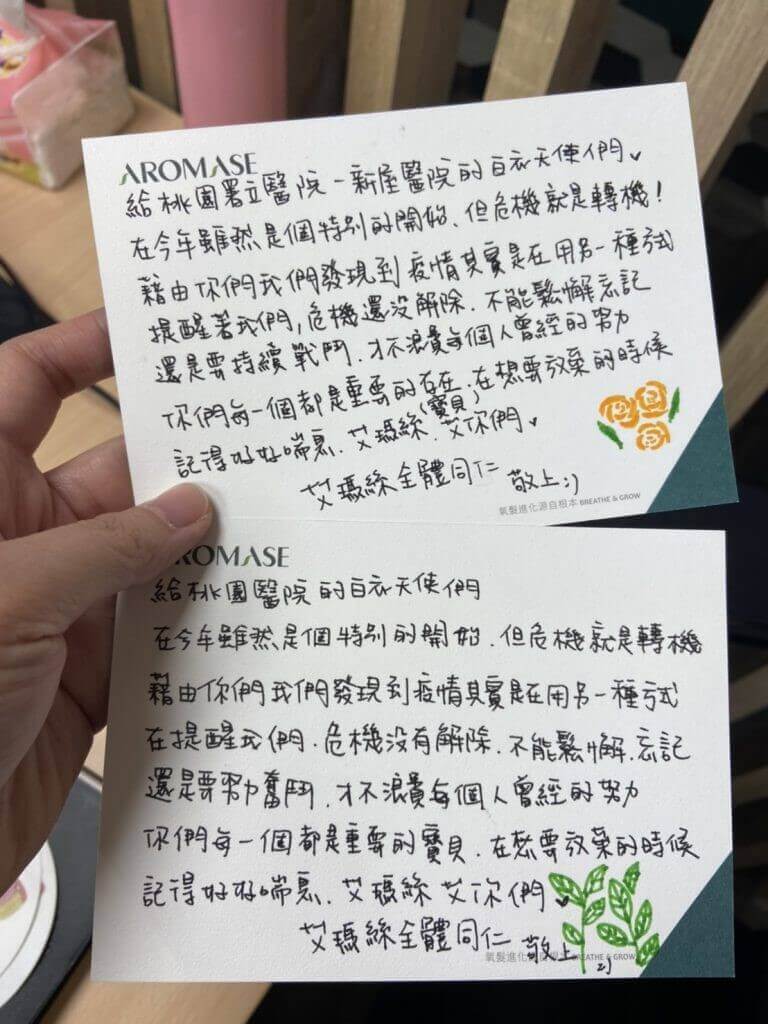 AROMASE
給桃園署立醫院-新屋醫院的白衣天使們
在今年雖然是個特別的開始、但危機就是轉機！
藉由你們我們發現到疫情其實是在用另一種式
提醒著我們，危機還沒解除、不能鬆懈忘記
還是要持續戰鬥、才不浪費每個人曾經的努力
你們每一個都是重要的存在、在想要放棄的時候
(寶貝)
記得好好喘息、艾瑪絲、艾你們
艾瑪絲全體同仁 敬上:)
氧髮進化源自根本 BREATHE & GROW
AROMASE
給桃園醫院的白衣天使們
在今年雖然是個特別的開始、但危機就是轉機
藉由你們我們發現到疫情其實是在用另一種式
在提醒我們、危機沒有解除、不能鬆懈、忘記
還是要努力奮鬥、才不浪費每個人曾經的努力
你們每一個都是重要的寶貝、在想要放棄的時候
記得好好喘息、艾瑪絲艾你們
艾瑪絲全體同仁 敬上:)
氧髮進化源自根本 BREATHE & GROW